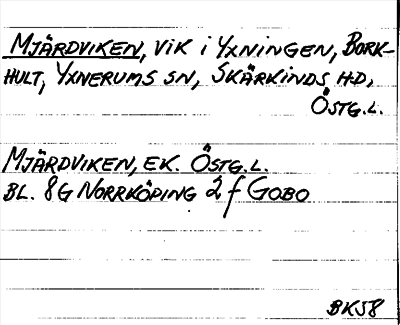 MJÄRDVIKEN, VIK i YXNINGEN, BORK-
HULT, YXNERUMS SN, SKÄRKINDS HD,
ÖSTG.L.
MJÄRDVIKEN, EK. ÖSTG.L.
BL. 8G NORRKÖPING 2 f GOBO
BK58